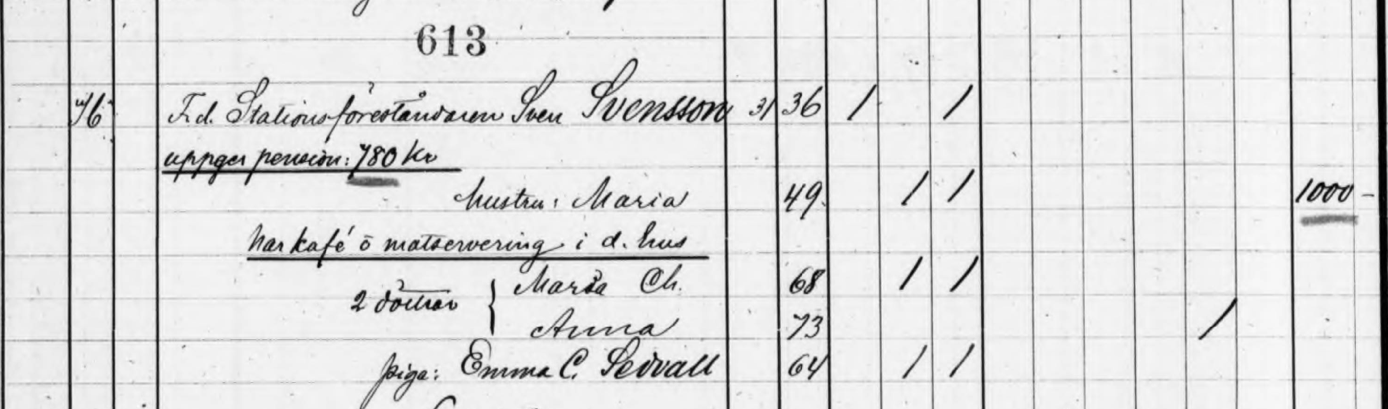 613
4/6 F.d. Stationsföreståndaren Sven Svensson 31 36 / /
uppger pension: 780 Kr
hustru: Maria 49 / / 1000 -
har kafé o matservering i d. hus
2 döttrar { Maria Ch. 68 / /
Anna 73 /
piga: Emma C. Sedvall 64 / /